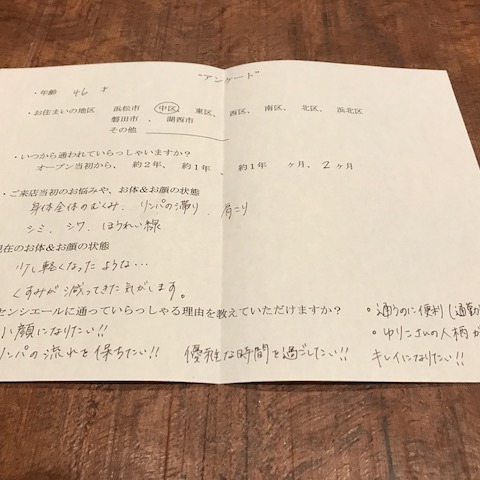 "アンケート"
・年齢 46 才
・お住まいの地区 浜松市 中区、東区、西区、南区、北区、浜北区
磐田市 、 湖西市
その他
・いつから通われていらっしゃいますか?
オープン当初から、 約2年、 約1年、 約1年 ヶ月、 2ヶ月
・ご来店当初のお悩みや、お体&お顔の状態
身体全体のむくみ、リンパの滞り、肩こり
シミ、シワ、ほうれい線
現在のお体&お顔の状態
少し軽くなったような…
くすみが減ってきた気がします。
センシエールに通っていらっしゃる理由を教えていただけますか?
小顔になりたい!!
リンパの流れを保ちたい!! 優雅な時間を過ごしたい!!
・通うのに便利(通勤
・ゆりこさんの人柄が
キレイになりたい!!